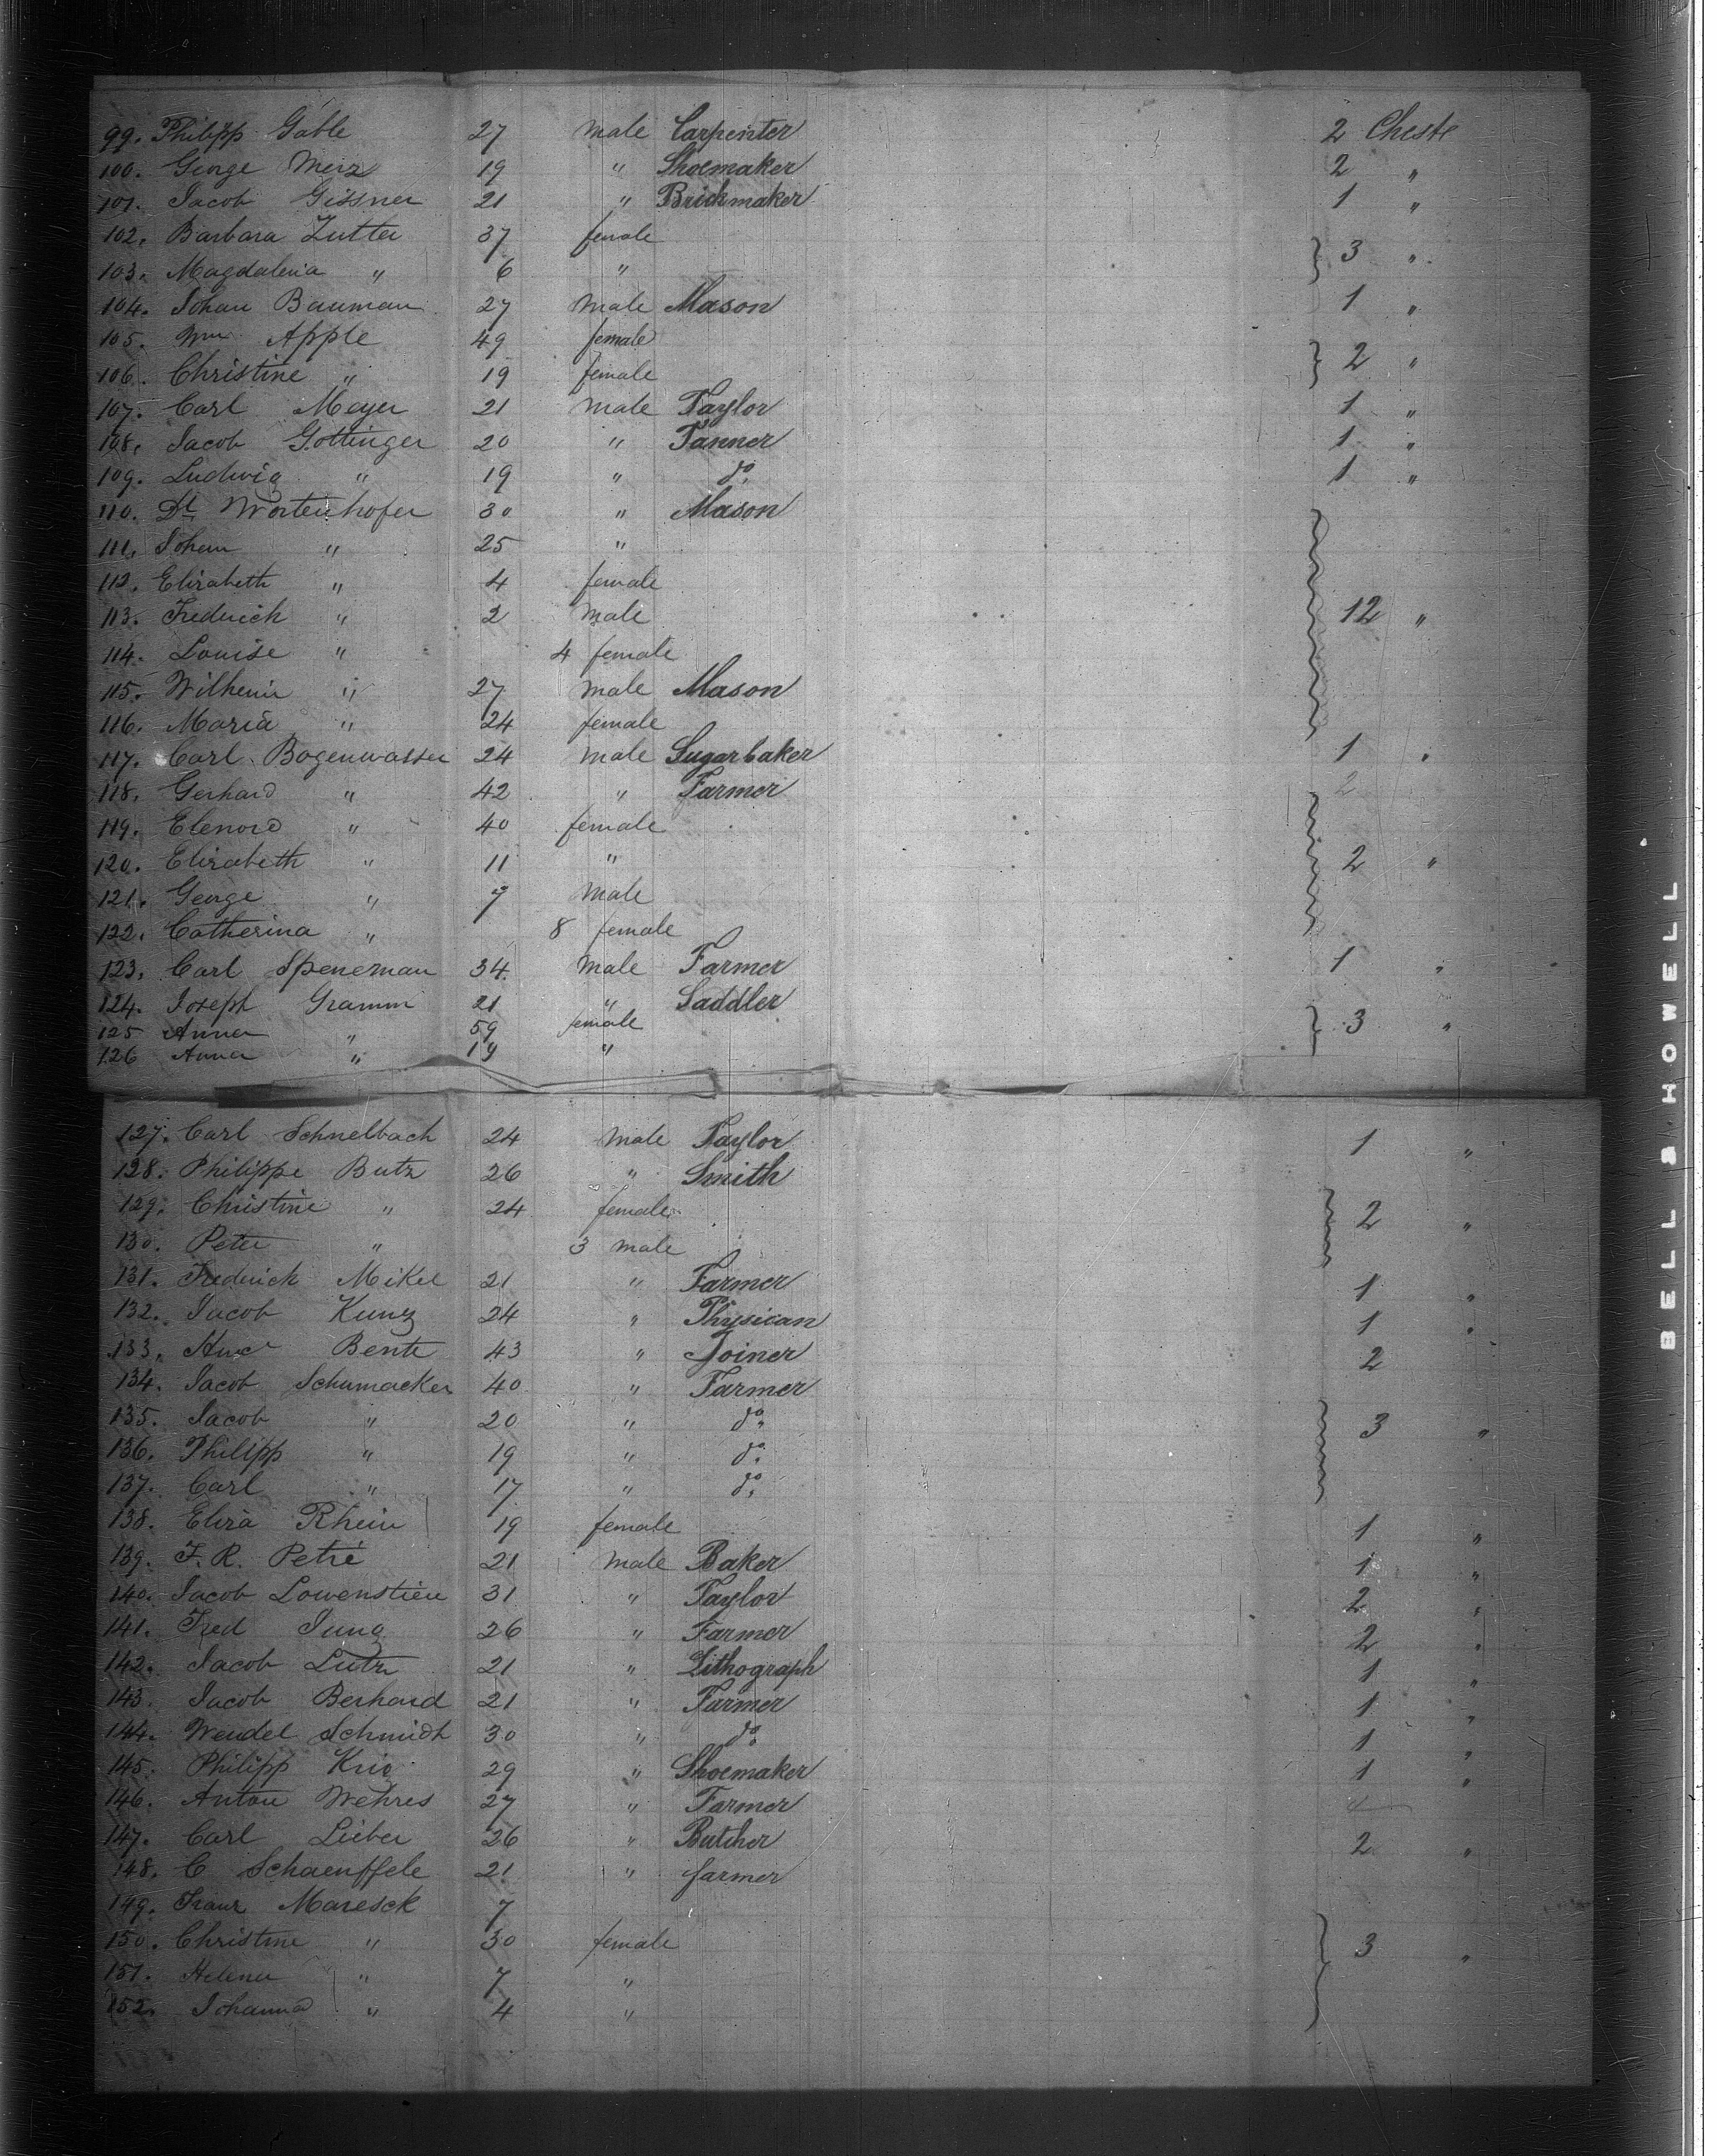 99. Philipp Gable 27 male Carpenter 2 Chests
100. George Merz 19 " Shoemaker 2 "
101. Jacob Gissner 21 " Brickmaker 1 "
102. Barbara Zutter 37 female
103. Magdalena " 6 " } 3 "
104. Johan Bauman 27 male Mason 1 "
105. Apple 49 female
106. Christine " 19 female } 2 "
107. Carl Meyer 21 male Taylor 1 "
108. Jacob Gottinger 20 " Tanner 1 "
109. Ludwig " 19 " do. 1 "
110. Wortenhofer 30 " Mason
111. Johan " 25 "
112. Elizabeth " 4 female
113. Frederick " 2 male } 12 "
114. Louise " 4 female
115. Wilhelm " 27 male Mason
116. Maria " 24 female
117. Carl Bogenwasser 24 male Sugarbaker 1 "
118. Gerhard " 42 " Farmer 2
119. Elenord " 40 female
120. Elizabeth " 11 " } 2 "
121. George " 7 male
122. Catherina " 8 female
123. Carl Speneman 34 male Farmer 1 "
124. Joseph Gramm 21 " Saddler
125 Anna " 59 female } 3 "
126 Anna " 19 "
127. Carl Schnelbach 24 male Taylor 1 "
128. Philippe Butz 26 " Smith
129. Christine " 24 female } 2 "
130. Peter " 3 male
131. Frederick Mikel 21 " Farmer 1 "
132. Jacob Kunz 24 " Physican 1 "
133. Bente 43 " Joiner 2
134. Jacob Schumacker 40 " Farmer
135. Jacob " 20 " do. } 3 "
136. Philipp " 19 " do.
137. Carl " 17 " do.
138. Eliza Rhein 19 female 1 "
139. F. R. Petré 21 male Baker 1 "
140. Jacob Lowenstien 31 " Taylor 2 "
141. Fred Jung 26 " Farmer 2 "
142. Jacob Lutz 21 " Lithograph 1 "
143. Jacob Berhard 21 " Farmer 1 "
144. Wendel Schmidt 30 " do. 1 "
145. Philipp 29 " Shoemaker 1 "
146. Anton Wehres 27 " Farmer
147. Carl Lieber 26 " Butcher 2 "
148. C Schaenffele 21 " farmer
149. Franz Maresck 7
150. Christine " 30 female } 3 "
151. Helena " 7 "
152. Johanna " 4 "
BELL & HOWELL